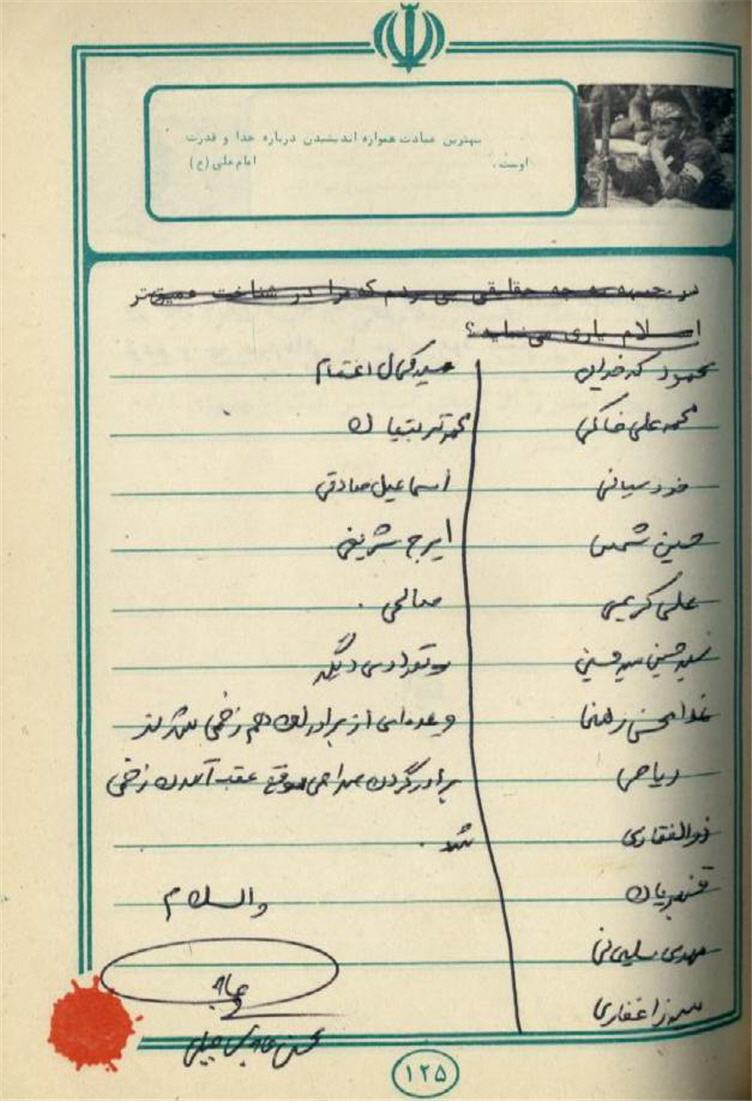 بهترین عبادت همواره اندیشیدن درباره خدا و قدرت
اوست."
امام علی (ع)
در جبهه به چه حقایقی پی بردم که مرا در شناخت عمیق‌تر
اسلام یاری می‌نماید؟
محمود کدخدایان
محمد علی خاکی
خود سیانی
حسین شمس
علی کریمی
سید حسین سید حسینی
غلامحسن رهنما
ریاحی
ذوالفقاری
قنبریان
مهدی سلیمانی
غفاری
سید کمال اعتصام
محمد
اسماعیل صادقی
ایرج شریفی
صالحی .
و تعدادی دیگر
و عده‌ای از برادران هم زخمی شدند
برادر گردن صراحی موقع عقب آمدن زخمی
شد .
والسلام
محسن
۱۲۵